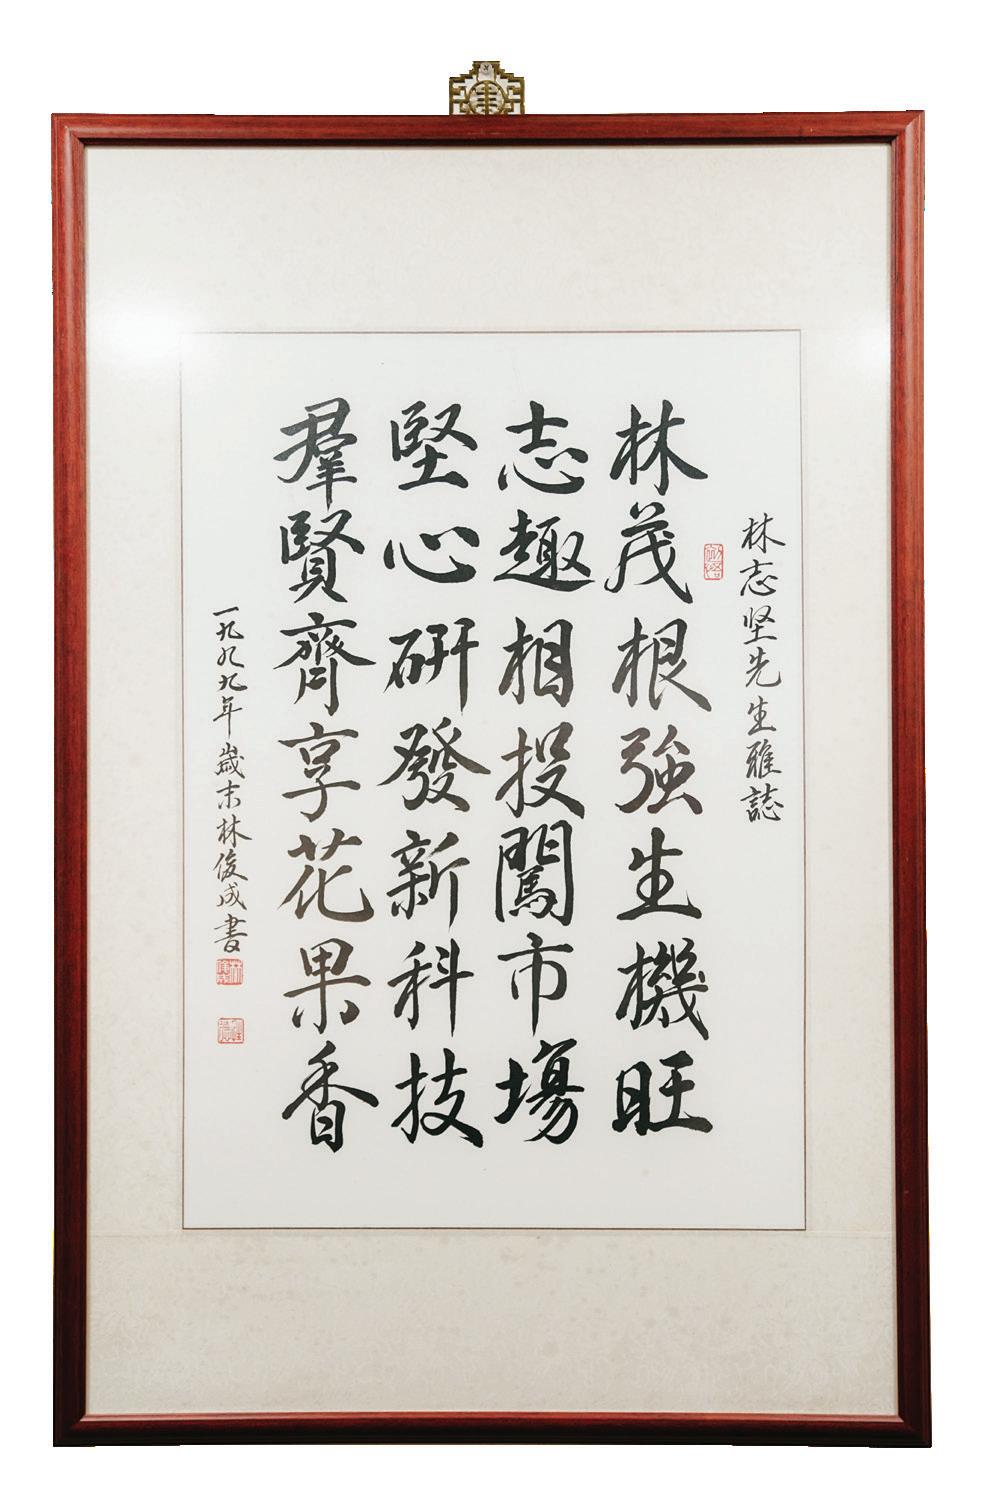 林志坚先生雅誌
林茂根強生機旺
志趣相投闖市場
堅心研發新科技
羣賢齊享花果香
一九九九年歲末林俊成書